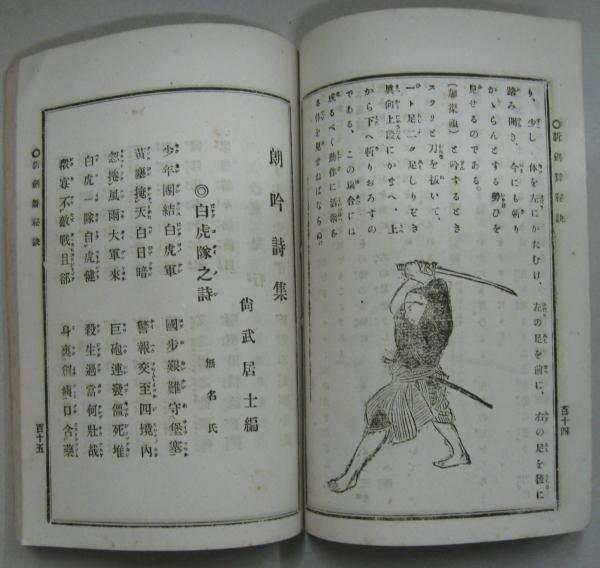 ◎新劍舞秘訣
り、少し體を左にかたむけ、左の足を前に、右の足を後に
踏み開き、今にも斬り
かゝらんとする勢ひを
見せるのである。
と吟ずるとき
スラリと刀を拔いて、
一ト足二タ足しりぞき
眞向上段にかまへ、上
から下へ斬りおろすの
である、この場合には
成るべく動作に活氣を
る體を見せねばならぬ。
百十四
朗吟詩集
尙武居士編
◎白虎隊之詩
無名氏
少年團結白虎軍 國步艱難守堡塞
黃塵掩天白日暗 警報交至四境內
忽捲風雨大軍來 巨砲連發僵死堆
白虎一隊自虎健 殺生過當何壯哉
衆寡不敵戰且郤 身裹創痍口含藥
◎新劍舞秘訣
百十五